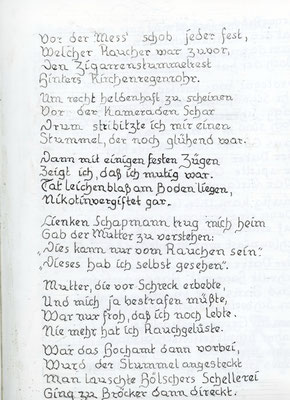 Vor der 'Mess' schob jeder fest,
Welcher Raucher war zuvor,
Den Zigarrenstummelrest
Hinters Kirchenregenrohr.
Um recht heldenhaft zu scheinen
Vor der Kameraden Schar
Drum stribitzte ich mir einen
Stummel, der noch glühend war.
Dann mit einigen festen Zügen
Zeigt ich, daß ich mutig war.
Tat leichenblaß am Boden liegen,
Nikotinvergiftet gar.
Lienken Schapmann trug mich heim
Gab der Mutter zu verstehen:
„Dies kann nur vom Rauchen sein"
„Dieses hab ich selbst gesehen".
Mutter, die vor Schreck erbebte,
Und mich ja bestrafen müßte,
War nur froh, daß ich noch lebte.
Nie mehr hat ich Rauchgelüste.
War das Hochamt dann vorbei,
Wurd der Stummel angesteckt
Man lauschte Bölschers Schellerei
Ging zu Bröcker dann direckt.